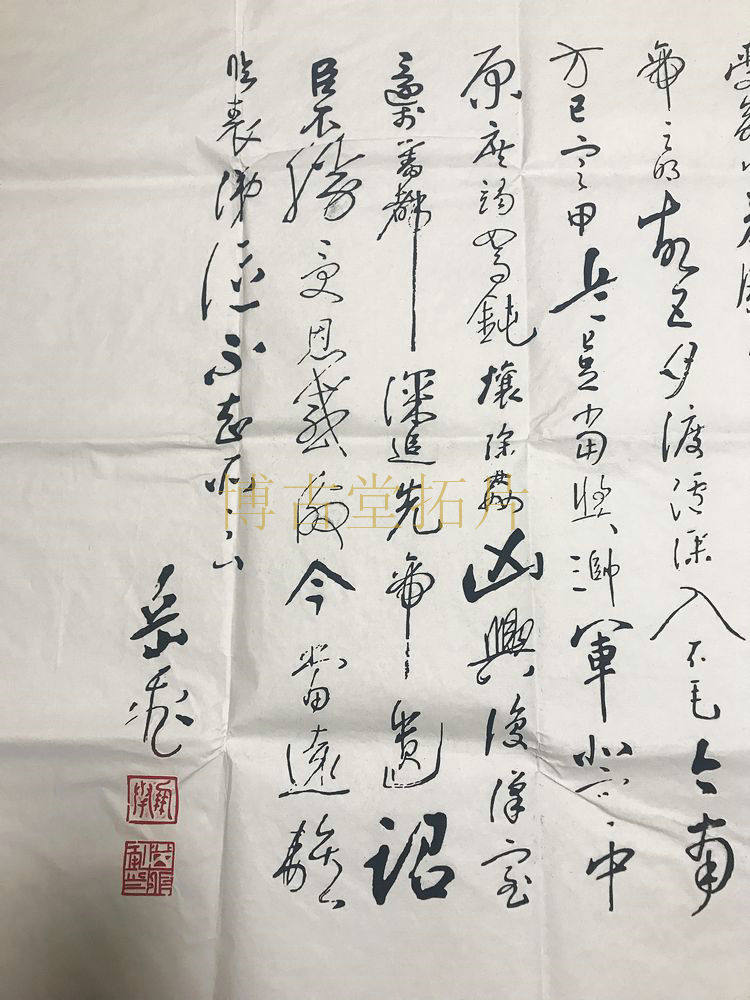 帝之明故五月渡瀘深入不毛今南
方已定甲兵已足當獎帥軍北定中
原庶竭駑鈍攘除姦凶興復漢室
還於舊都深追先帝遺詔
臣不勝受恩感激今當遠離
臨表涕泣不知所云
岳飛
博古堂拓片